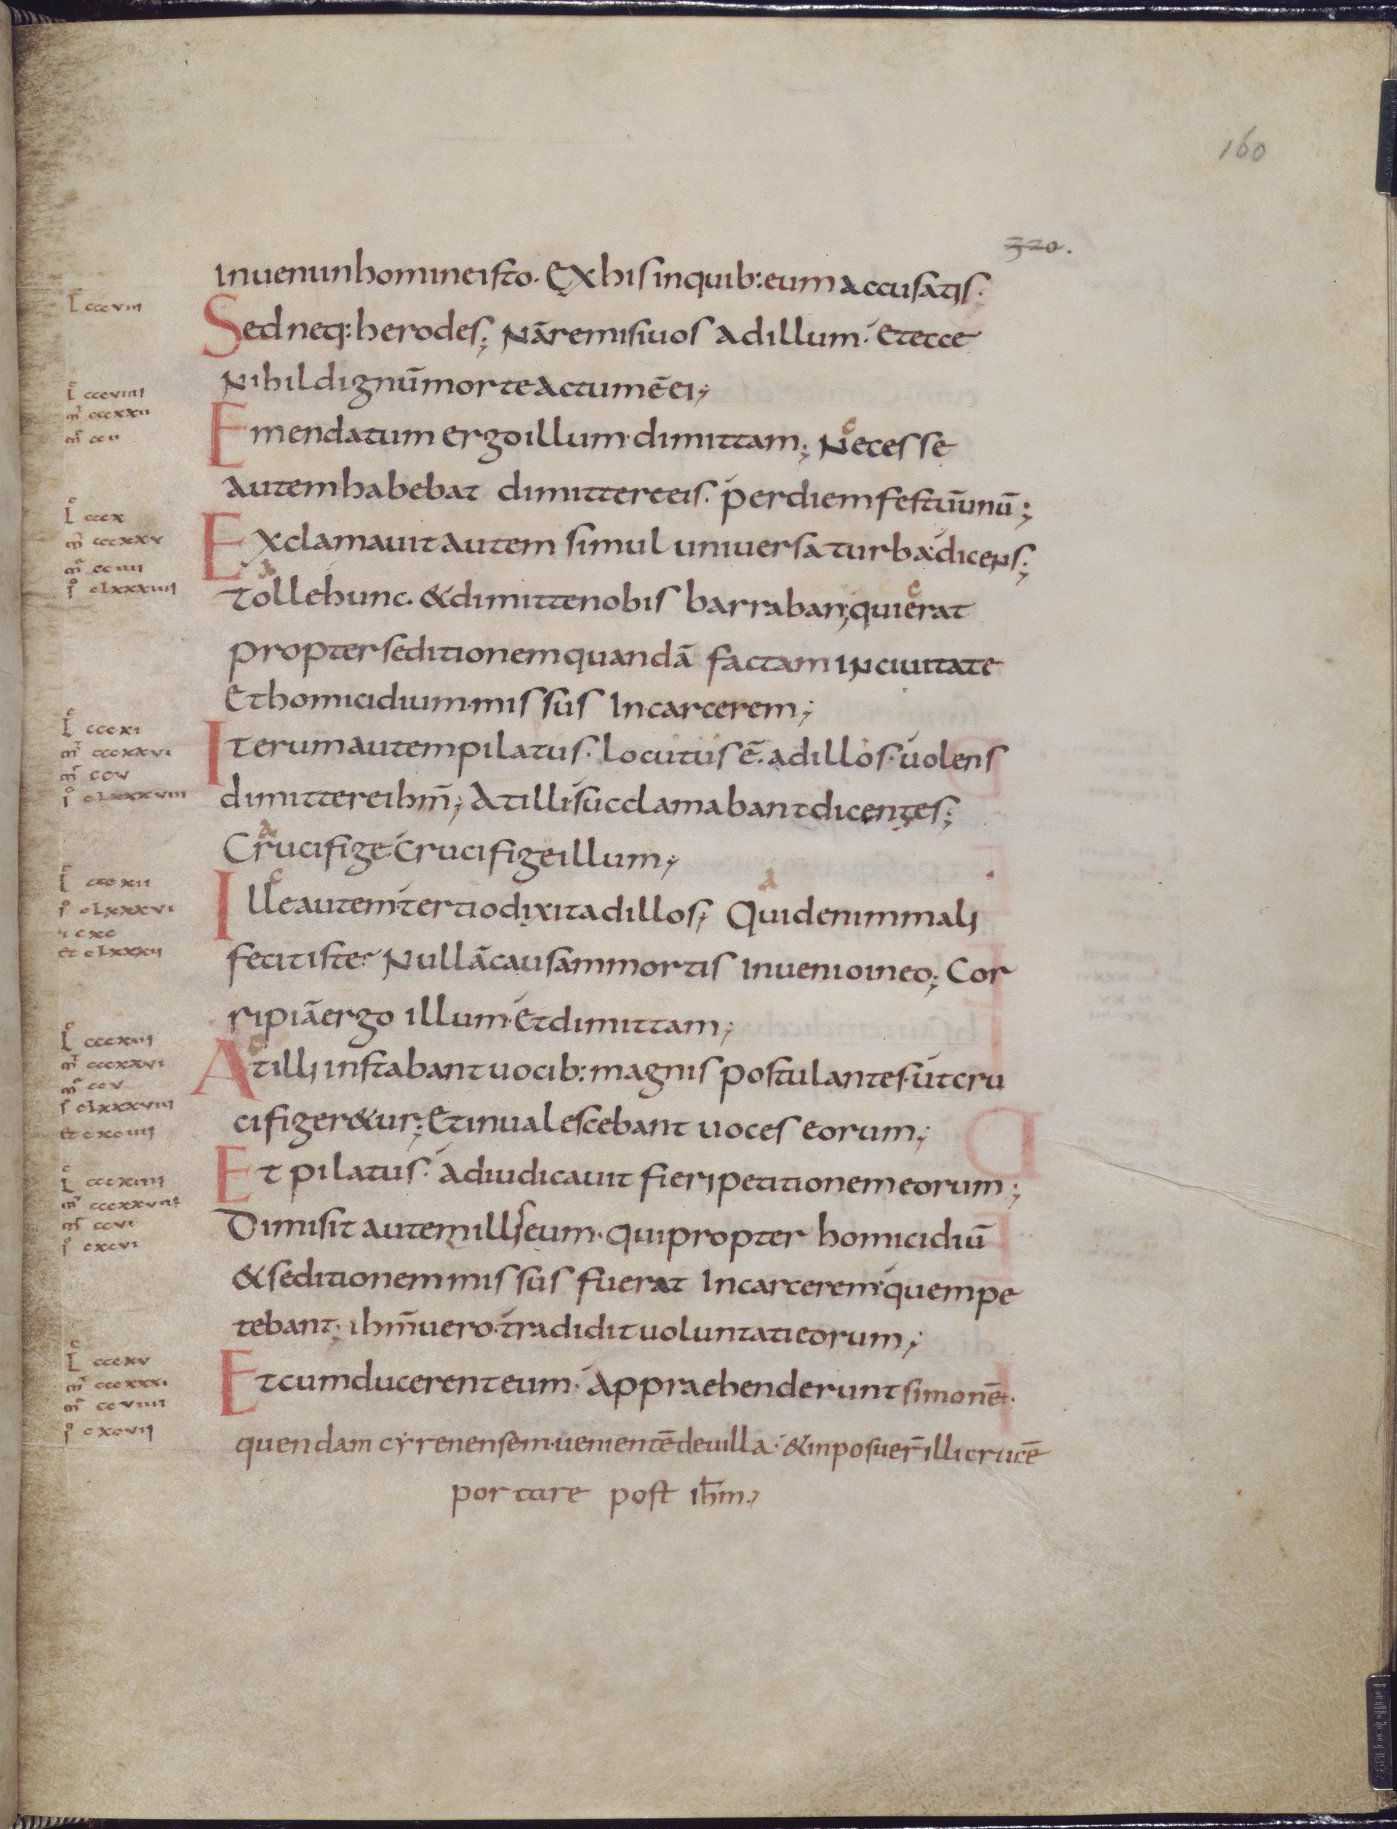 160
320.
inueni inhomine isto. Ex his inquib: eum accusatis;
L cccviii
Sed neq: herodes; Nā remisi uos ad illum. Et ecce
Nihil dignū morte actum ē ei;
L cccviiii
mr cccxxii
mt ccii
Emendatum ergo illum dimittam; Necesse
autem habebat dimittere eis. per diem festū unū;
L cccx
mr cccxxv
mt cciiii
io clxxxiiii
Exclamauit autem simul uniuersa turba dicens;
Tolle hunc. & dimitte nobis barraban; qui erat
propter seditionem quandā factam in ciuitate
Et homicidium. missus In carcerem;
L cccxi
mr cccxxvi
mt ccv
io clxxxviii
Iterum autem pilatus. locutus ē. ad illos. uolens
dimittere ihm̄; At illi succlamabant dicentes;
Crucifige. Crucifige illum;
L cccxii
io clxxxvi
cxc
et clxxxii
Ille autem tertio dixit ad illos; Quid enim mali
fecit iste? Nullā causam mortis Inuenio in eo; Cor
ripiā ergo illum. Et dimittam;
L cccxiii
mr cccxxvi
mt ccv
io clxxxviii
et cxciiii
At illi instabant uocib: magnis postulantes. ut cru
cifiger&ur; Et inualescebant uoces eorum;
L cccxiiii
mr cccxxviii
mt ccvi
io cxcvi
Et pilatus. adiudicauit fieri petitionem eorum;
Dimisit autem illis eum. qui propter homicidiū
& seditionem missus fuerat In carcerem. quem pe
tebant. ihm̄ uero. tradidit uoluntati eorum;
L cccxv
mr cccxxxi
mt ccviiii
io cxcvii
Et cum ducerent eum. Appraehenderunt simonē.
quendam cyrenensem. uenientē de uilla. & inposuer̄ illi crucē
portare post ihm̄.